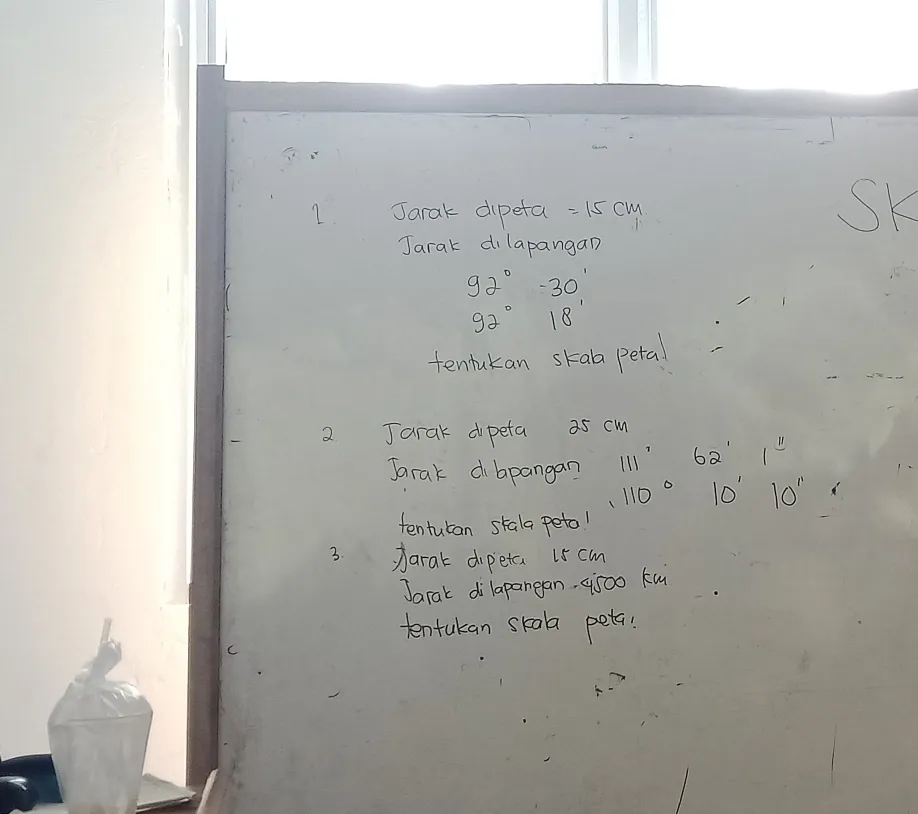 SK
1. Jarak dipeta = 15 cm
Jarak dilapangan
92° -30'
92° 18'
tentukan skala peta!
2. Jarak dipeta 25 cm
Jarak dilapangan 111° 62' 1"
110° 10' 10"
tentukan skala peta!
3. Jarak dipeta 15 cm
Jarak dilapangan 4500 km
tentukan skala peta!